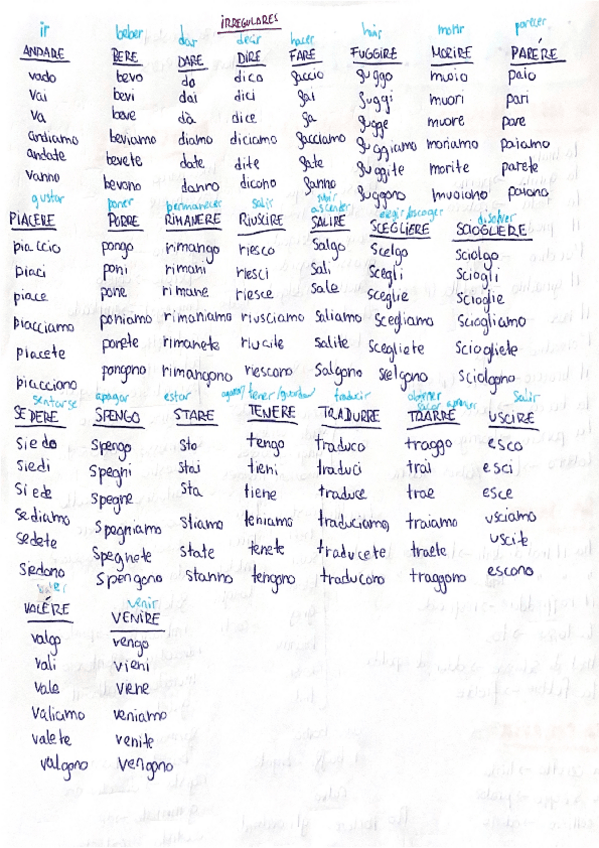 IRREGULARES
ir beber dar decir hacer huir morir parecer
ANDARE BERE DARE DIRE FARE FUGGIRE MORIRE PARÉRE
vado bevo do dico faccio fuggo muoio paio
vai bevi dai dici fai fuggi muori pari
va beve dà dice fa fugge muore pare
andiamo beviamo diamo diciamo facciamo fuggiamo moriamo paiamo
andate bevete date dite fate fuggite morite parete
vanno bevono danno dicono fanno fuggono muoiono paiono
gustar poner permanecer salir subir ascender elegir/escoger disolver
PIACERE PORRE RIMANERE RIUSCIRE SALIRE SCEGLIERE SCIOGLIERE
piaccio pongo rimango riesco Salgo Scelgo Sciolgo
piaci poni rimani riesci Sali Scegli Sciogli
piace pone rimane riesce Sale Sceglie Scioglie
piacciamo poniamo rimaniamo riusciamo Saliamo Scegliamo Sciogliamo
piacete ponete rimanete riucite Salite Scegliete Sciogliete
piacciono pongono rimangono riescono Salgono Scelgono Sciolgono
sentarse apagar estar tener/guardar traducir Salir
SEDERE SPENGO STARE TENERE TRADURRE TRARRE USCIRE
Siedo Spengo Sto tengo traduco traggo esco
Siedi Spegni Stai tieni traduci trai esci
Siede Spegne Sta tiene traduce trae esce
Sediamo Spegniamo Stiamo teniamo traduciamo traiamo usciamo
Sedete Spegnete State tenete traducete traete uscite
Siedono Spengono Stanno tengono traducono traggono escono
valer venir
VALÉRE VENIRE
valgo vengo
vali vieni
vale viene
valiamo veniamo
valete venite
valgono vengono